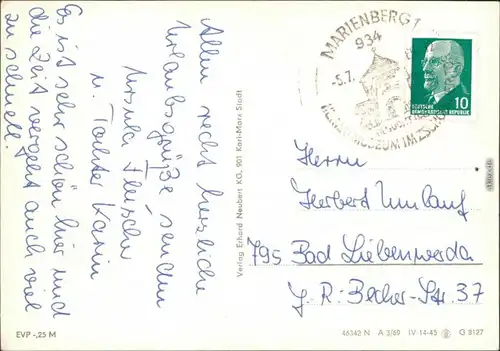 Allen recht herzliche
Urlaubsgrüße senden
Ursula Fleischer
u. Tochter Karin
Es ist sehr schön hier und
die Zeit vergeht auch viel
zu schnell.
Verlag Erhard Neubert KG, 901 Karl-Marx-Stadt
MARIENBERG 1
934
-5.7.
DEUTSCHE
DEMOKRATISCHE REPUBLIK
10
Herrn
Herbert Umlauf
795 Bad Liebenwerda
J.-R.-Becher-Str. 37
EVP -,25 M
46342 N A 3/69 IV-14-45 G 8127